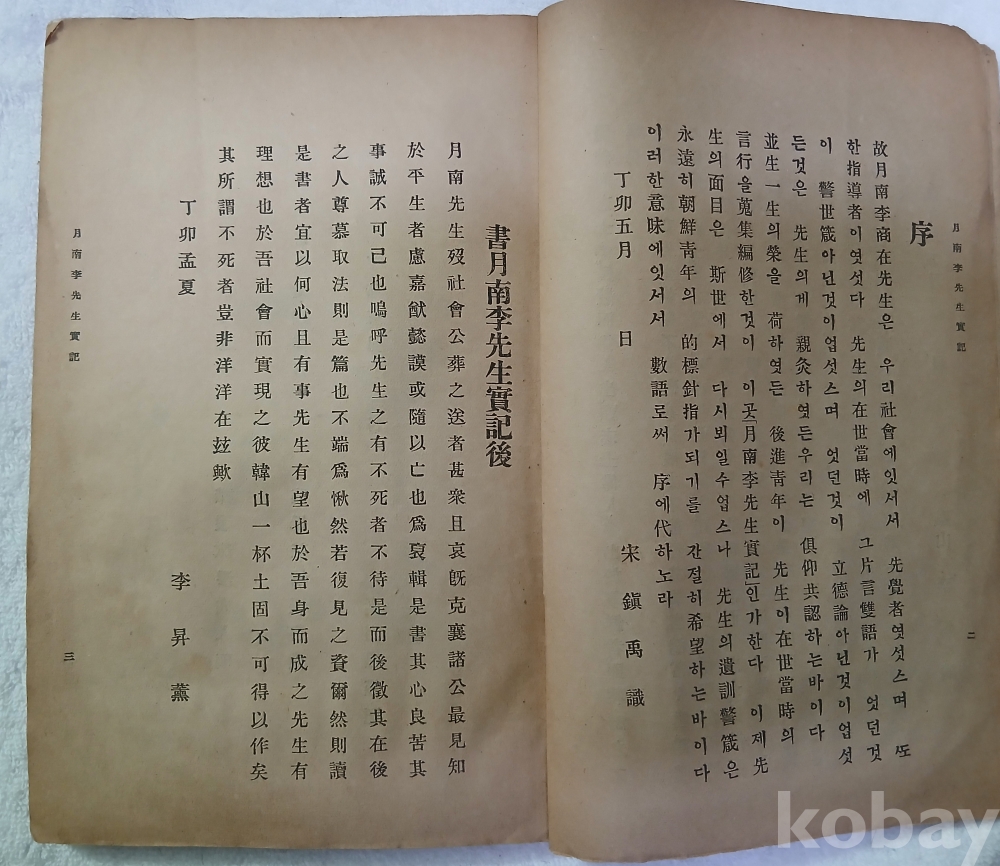 月南李先生實記
二
序
故月南李商在先生은 우리社會에잇서서 先覺者엿섯스며 또
한指導者이엿섯다 先生의在世當時에 그片言雙語가 엇던것
이 警世箴아닌것이업섯스며 엇던것이 立德論아닌것이업섯
든것은 先生의게 親灸하엿든우리는 俱仰共認하는바이다
並生一生의榮을 荷하엿든 後進青年이 先生이在世當時의
言行을蒐集編修한것이 이곳「月南李先生實記」인가한다 이제先
生의面目은 斯世에서 다시뵈일수업스나 先生의遺訓警箴은
永遠히朝鮮青年의 的標針指가되기를 간절히希望하는바이다
이러한意味에잇서서 數語로써 序에代하노라
丁卯五月 日 宋鎭禹識
書月南李先生實記後
月南先生歿社會公葬之送者甚衆且哀旣克襄諸公最見知
於平生者慮嘉猷懿謨或隨以亡也爲裒輯是書其心良苦其
事誠不可已也嗚呼先生之有不死者不待是而後徵其在後
之人尊慕取法則是篇也不端爲愀然若復見之資爾然則讀
是書者宜以何心且有事先生有望也於吾身而成之先生有
理想也於吾社會而實現之彼韓山一杯土固不可得以作矣
其所謂不死者豈非洋洋在玆歟
丁卯孟夏
李昇薰
月南李先生實記
三
kobay